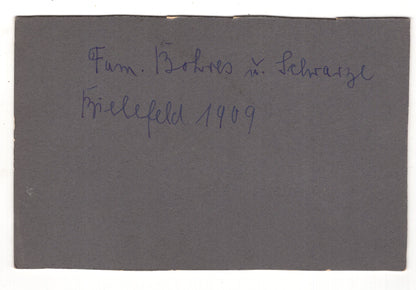 Fam. Bohres u. Schwarze
Bielefeld 1909